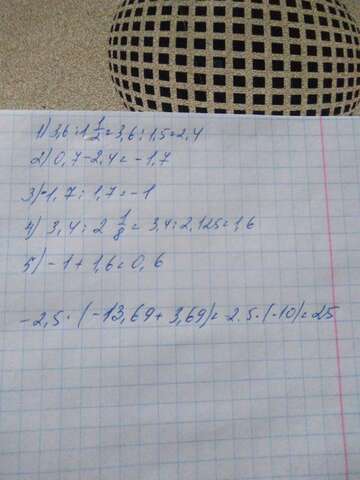 1) 3,6 : 1 1/2 = 3,6 : 1,5 = 2,4
2) 0,7 - 2,4 = -1,7
3) -1,7 : 1,7 = -1
4) 3,4 : 2 1/8 = 3,4 : 2,125 = 1,6
5) -1 + 1,6 = 0,6
-2,5 · (-13,69 + 3,69) = -2,5 · (-10) = 25